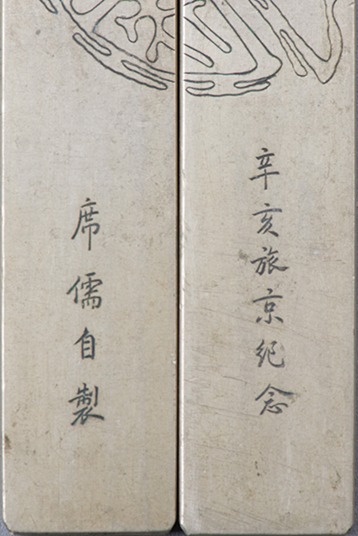 辛亥旅京纪念
席儒自製